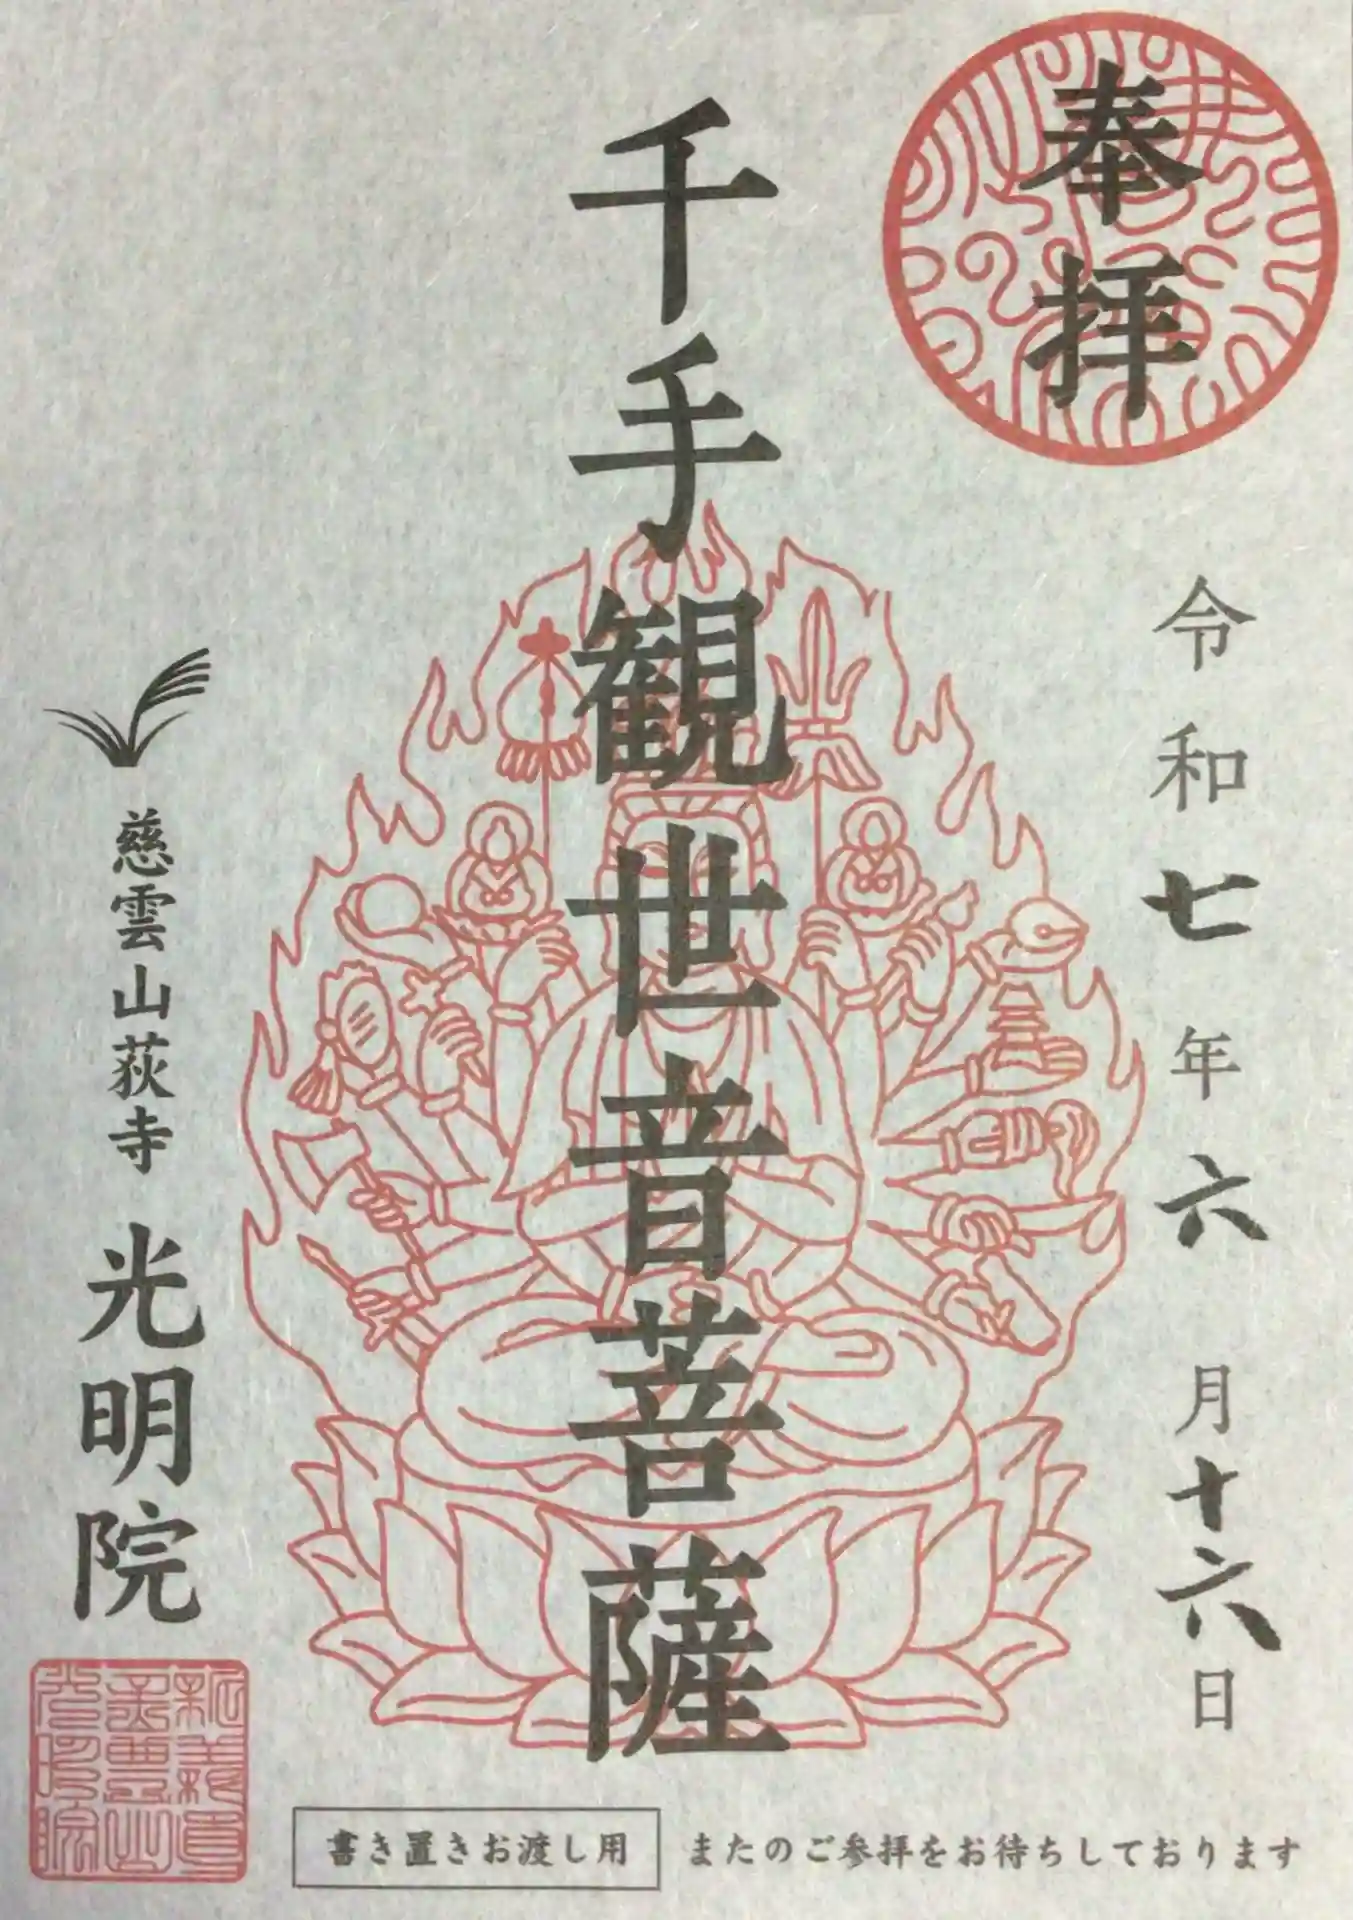 奉拝
令和七年六月十六日
千手観世音菩薩
慈雲山荻寺 光明院
書き置きお渡し用
またのご参拝をお待ちしております